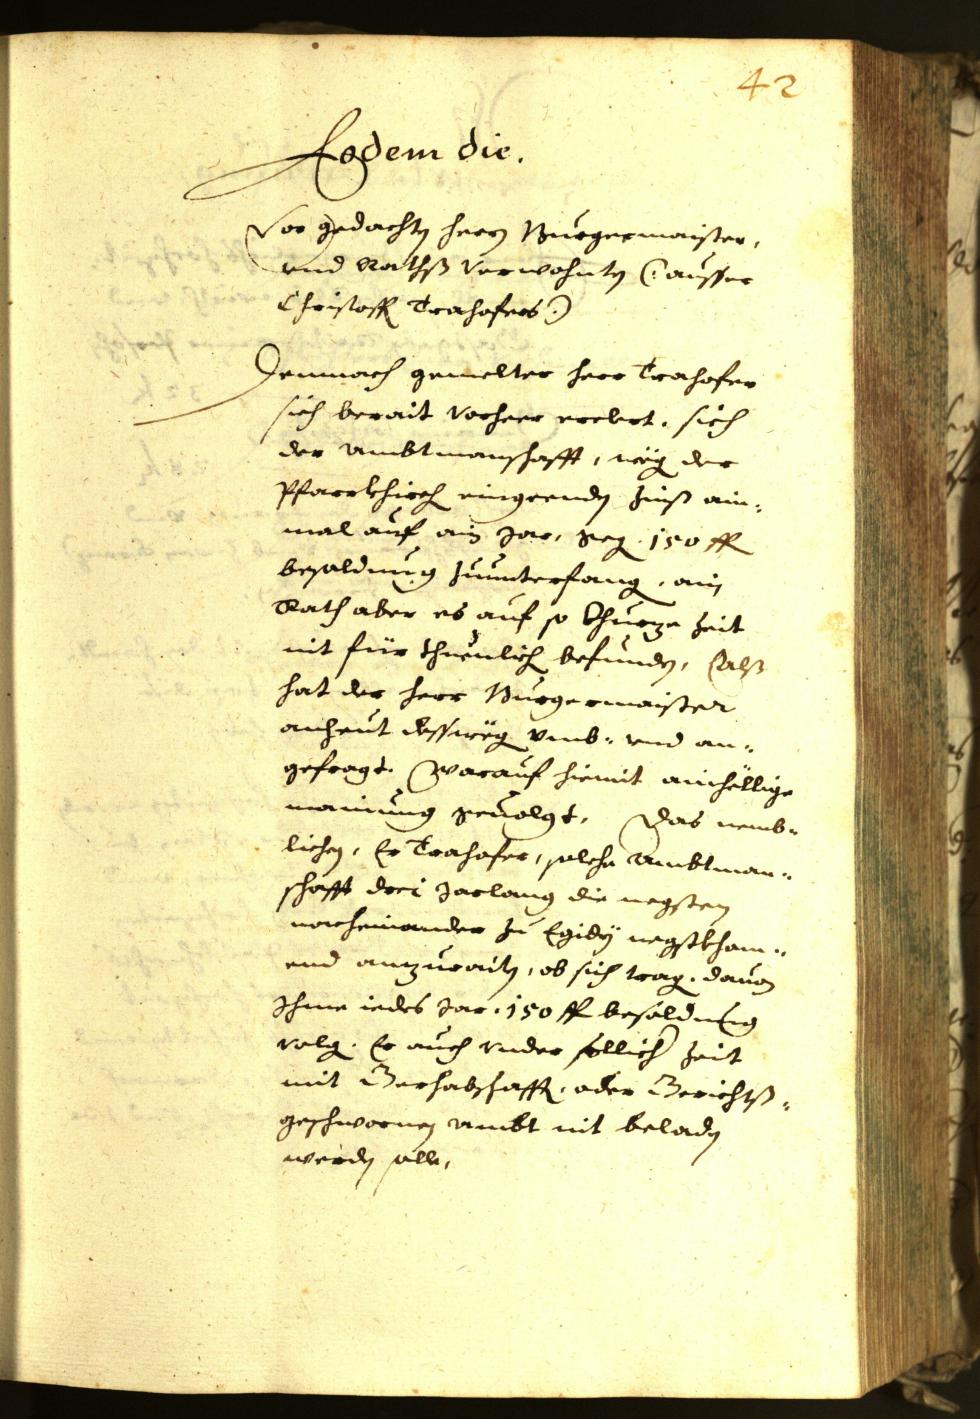 42
Eodem die.
Vor gedachtn herrn Burgermaister,
vnd Rathß Verwohntn (: ausser
Christoff Trahofers :)
Demnach gemelter herr Trahofer
sich berait vorheer erclert, sich
der ambtmanschafft, weg der
Pfarrkhirch eingeenden Zinß ain-
mal auf ain Jar, peg. 150 fl
besoldnung Zuunterfang, ain
Rath aber es auf so khurze Zeit
nit für thuenlich befunden, Alß
hat der herr Burgermaister
anheut desswëg vmb- vnd an-
gefragt. Warauf hiemit ainhëllige
mainung geuolgt, Das nemb-
lichen, Er Trahofer, solche ambtman-
schafft drei Jarlang die negsten
nacheinander zu Egidÿ negstkham-
end anzuraitn, ob sich trag. dauon
Ihme iedes Jar, 150 fl besoldnung
volg. Er auch vnder sollich Zeit
mit Gerhabschafft, oder Gerichtß-
geschwornen ambt nit beladn
werdn solle,